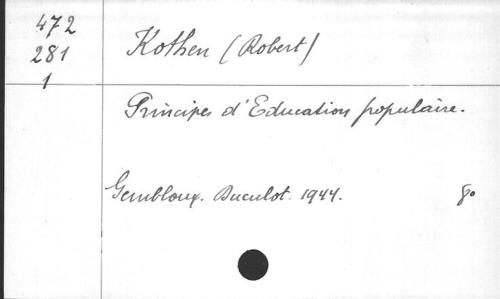 472
281
1
Kothen (Robert)
Principes d'Education populaire.
Gembloux. Duculot. 1944. 8°